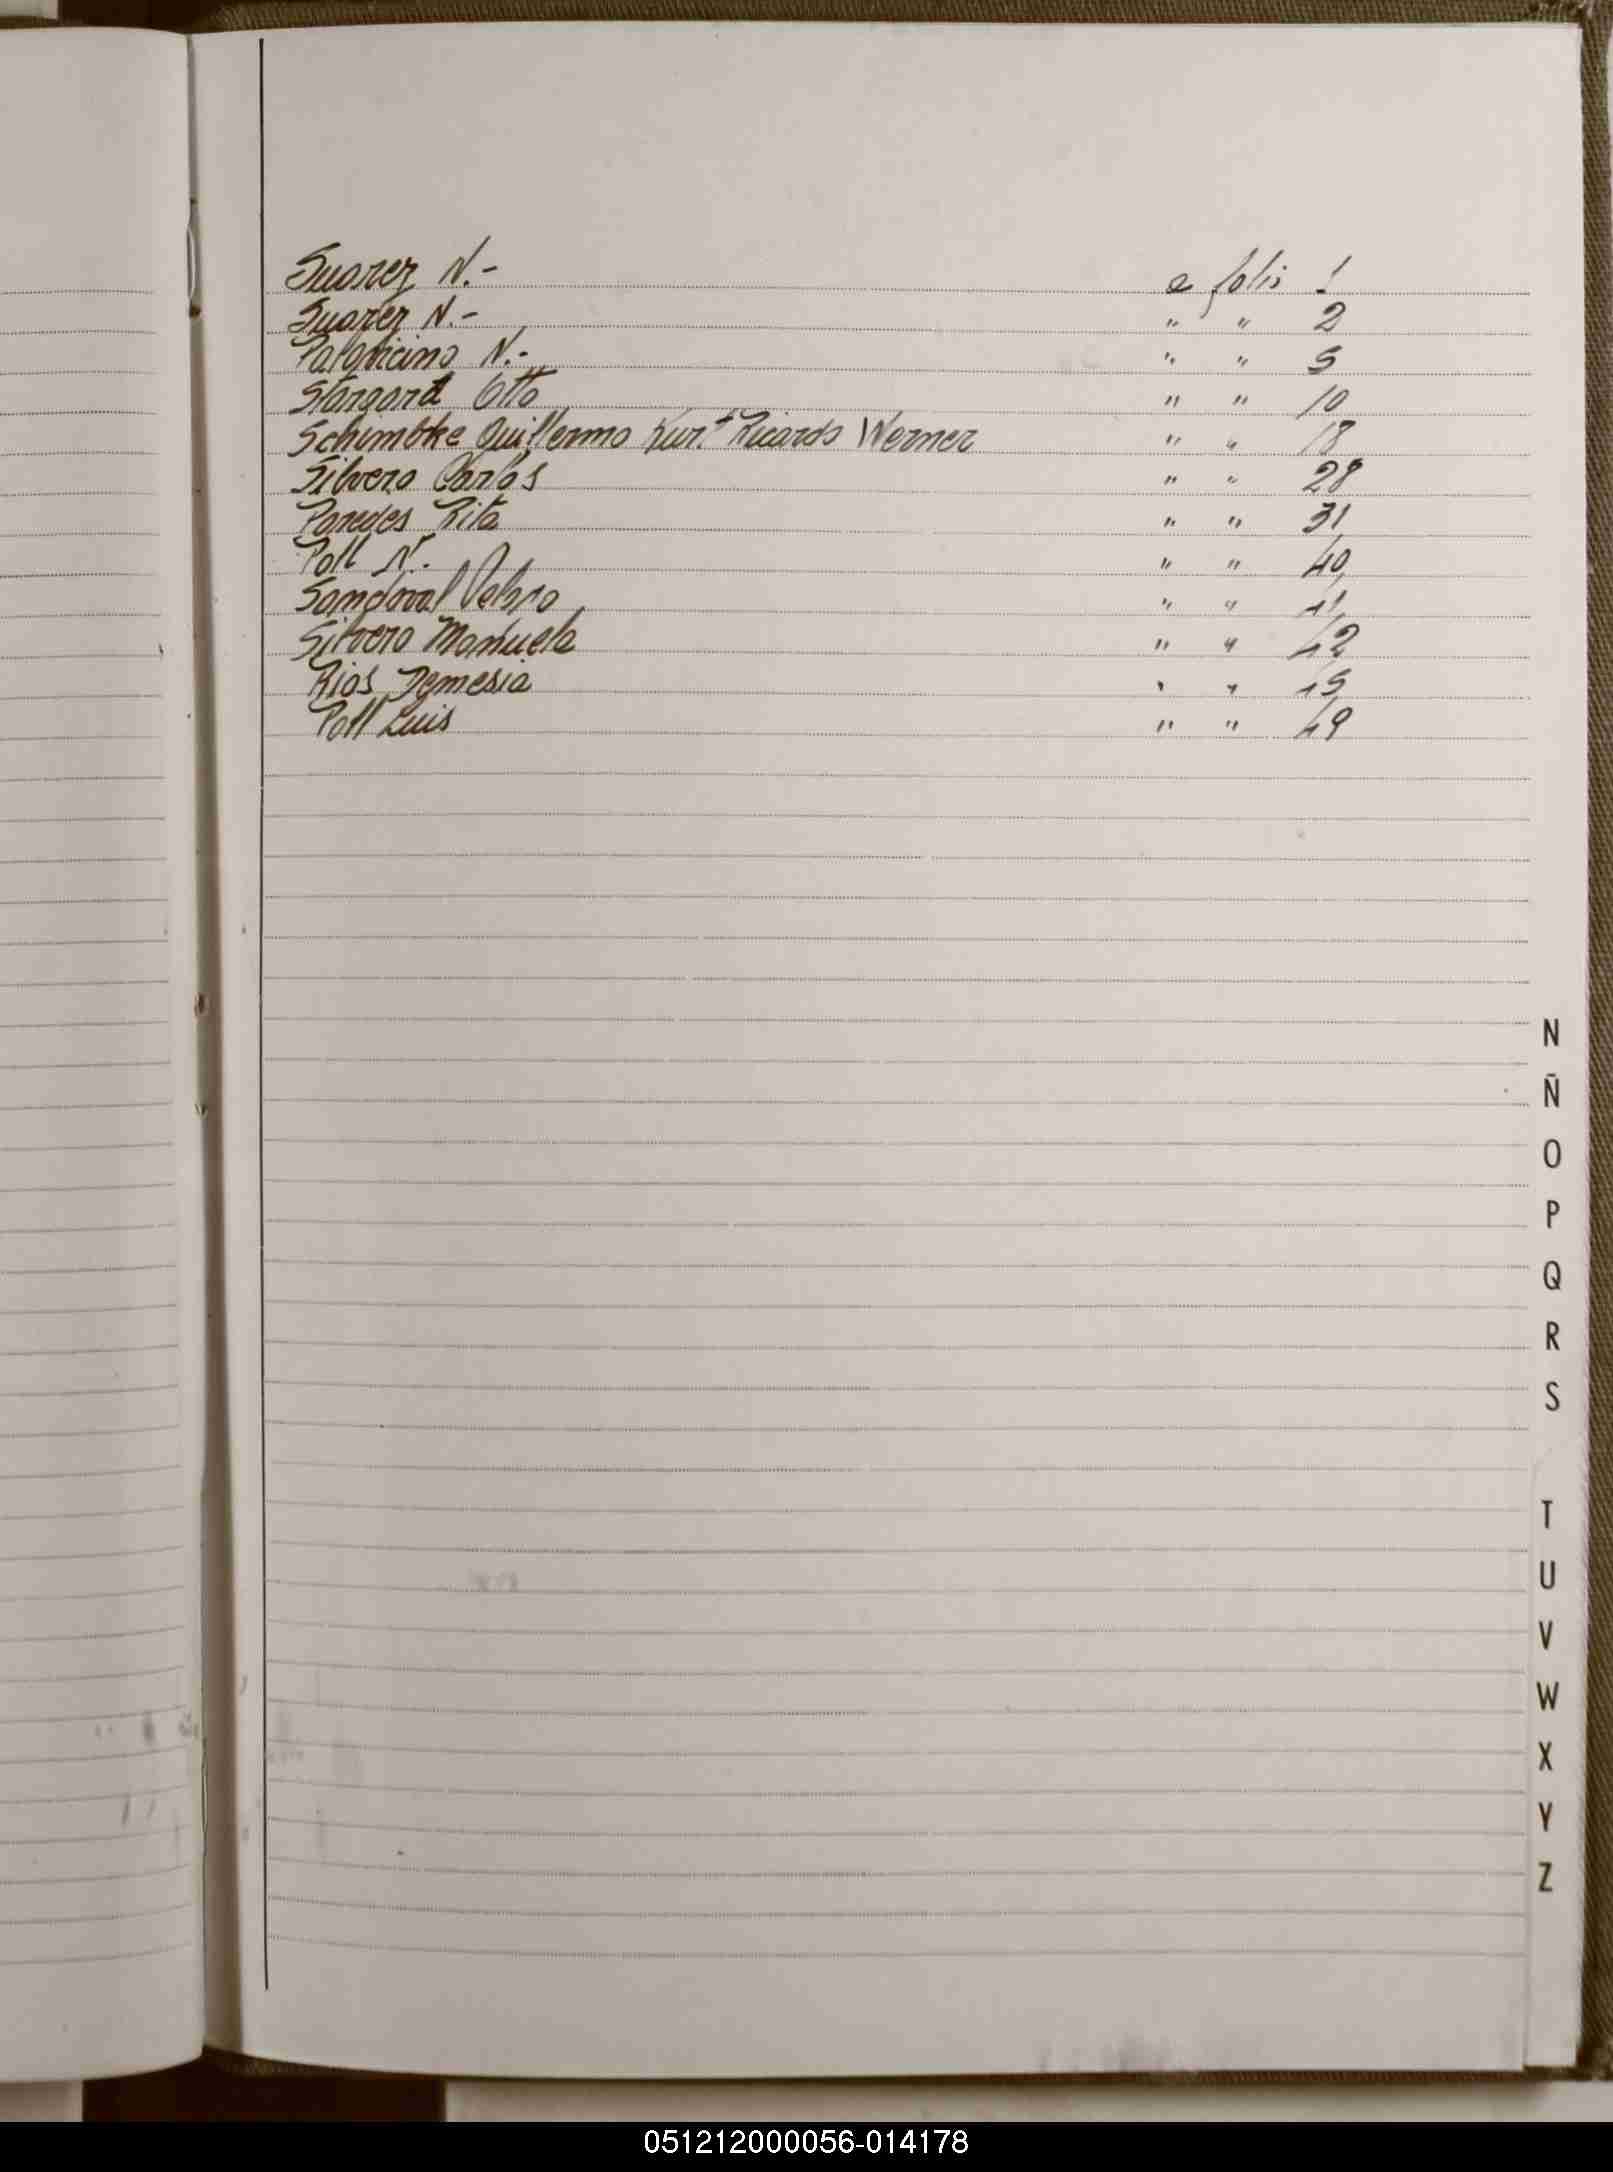 Suarez N.- a folio 1
Suarez N.- " " 2
Palavicino N.- " " 5
Stangard Otto " " 10
Schimbke Guillermo Kurt Ricardo Werner " " 18
Silvero Carlos " " 28
Paredes Rita " " 31
Poll N.- " " 40
Sandoval Pedro " " 41
Silvero Manuela " " 42
Rios " " 45
Poll Luis " " 49
N
Ñ
O
P
Q
R
S
T
U
V
W
X
Y
Z
051212000056-014178